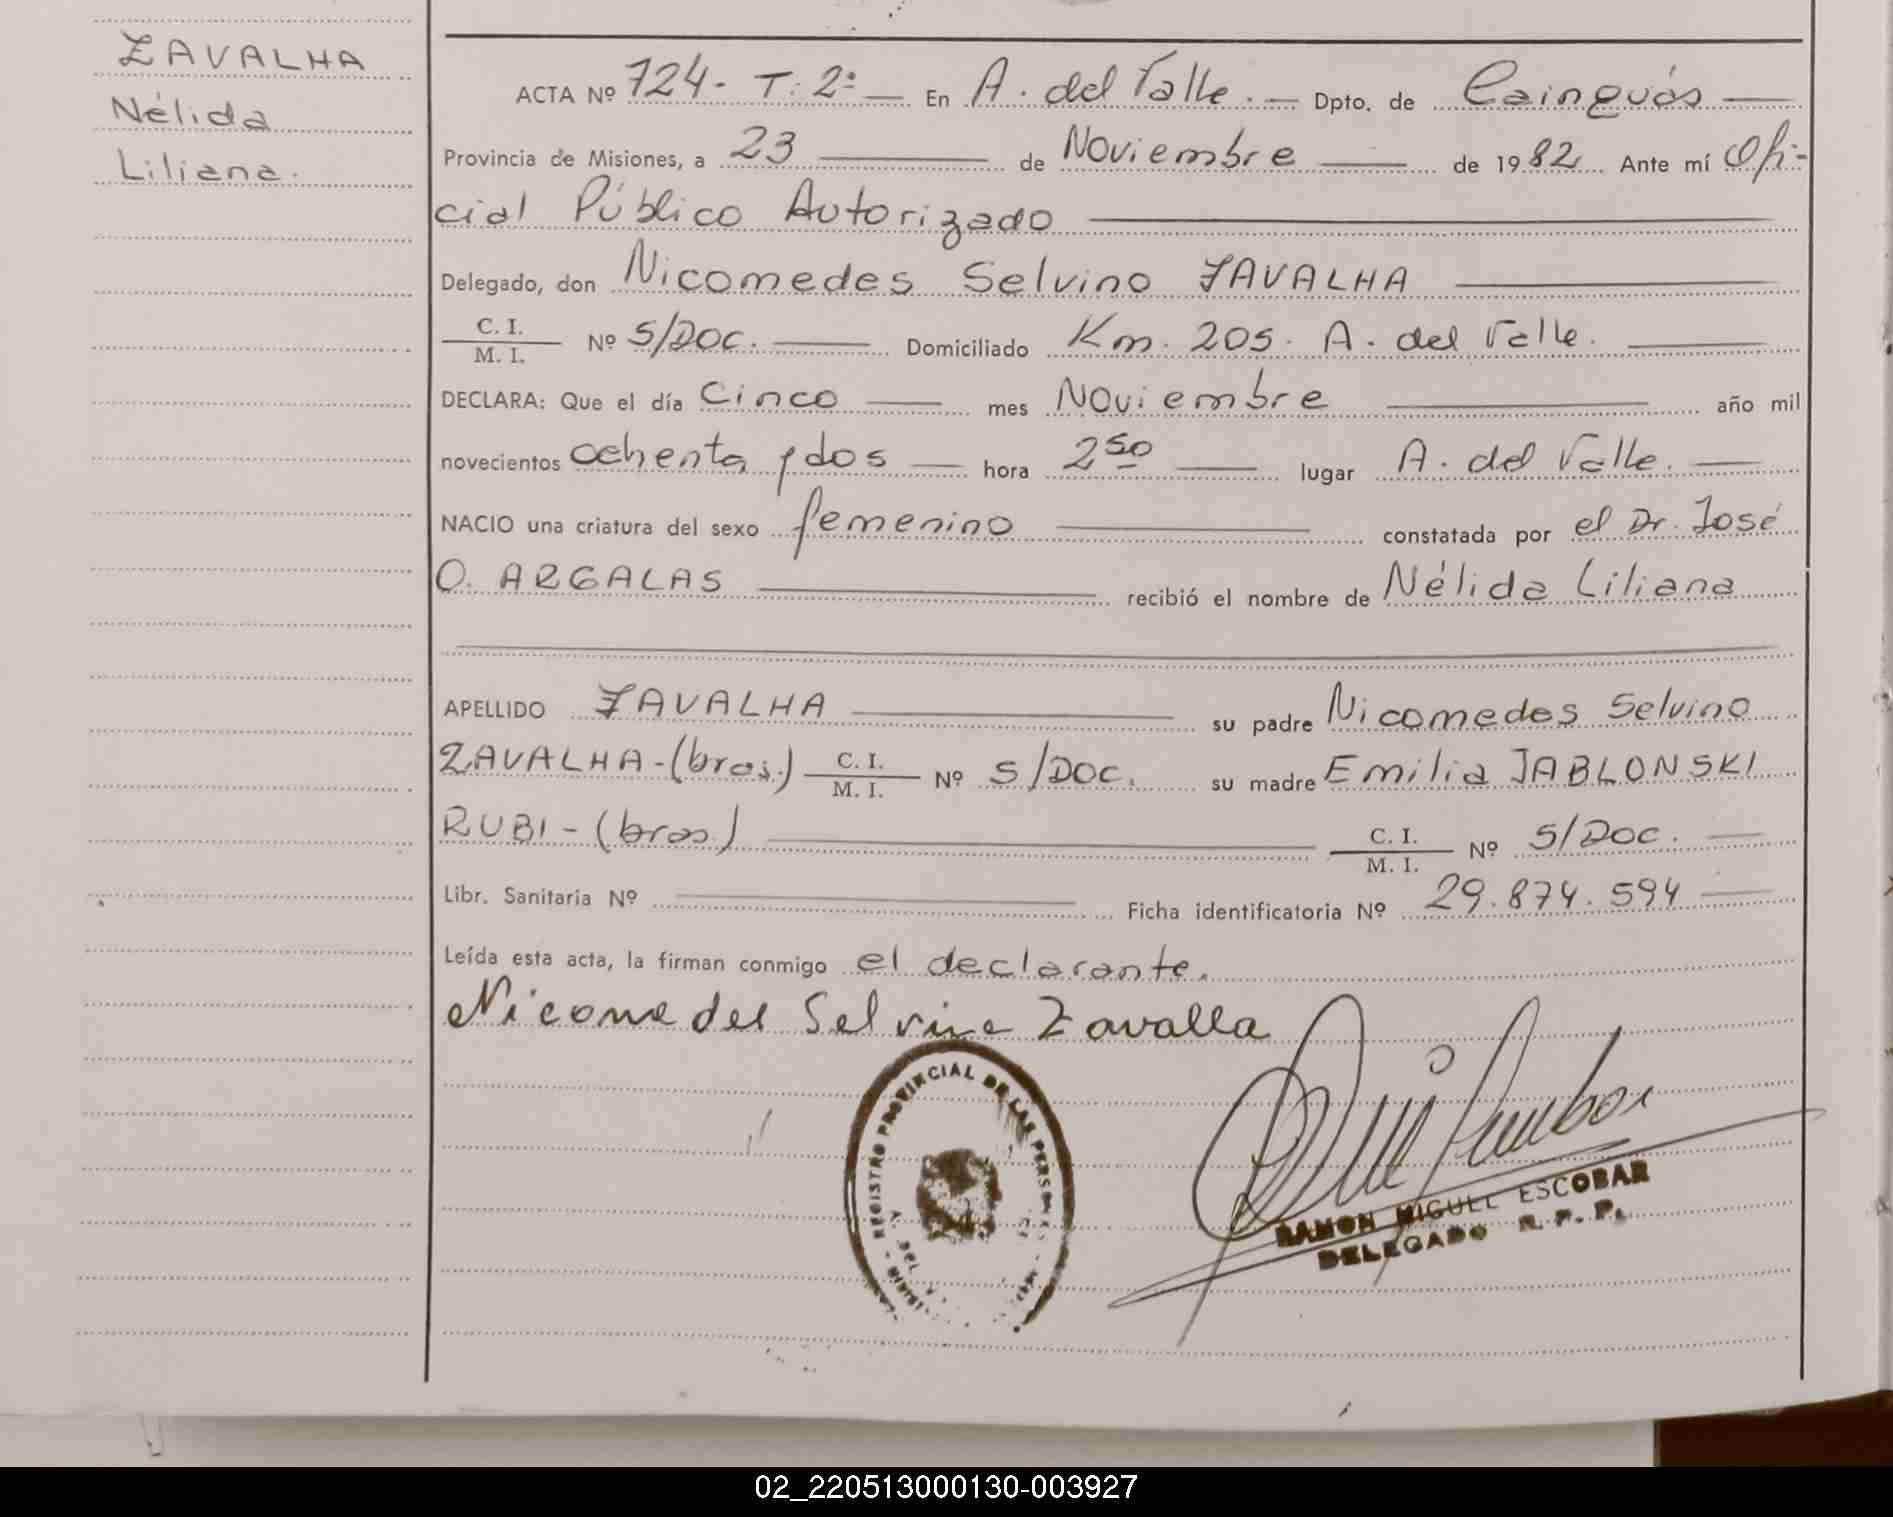 ZAVALHA
Nélida
Liliana.
ACTA Nº 724- T: 2º En A. del Valle. Dpto. de Cainguás
Provincia de Misiones, a 23 de Noviembre de 1982 Ante mí Ofi-
cial Público Autorizado
Delegado, don Nicomedes Selvino ZAVALHA
C. I.
M. I. Nº S/DOC. Domiciliado Km. 205. A. del Valle.
DECLARA: Que el día Cinco mes Noviembre año mil
novecientos ochenta y dos hora 2 50 lugar A. del Valle.
NACIO una criatura del sexo femenino constatada por el Dr. José
O. ARGALAS recibió el nombre de Nélida Liliana
APELLIDO ZAVALHA su padre Nicomedes Selvino
ZAVALHA-(bras.) C. I.
M. I. Nº S/DOC. su madre Emilia JABLONSKI
RUBI-(bras) C. I.
M. I. Nº S/DOC.
Libr. Sanitaria Nº Ficha identificatoria Nº 29.874.594
Leída esta acta, la firman conmigo el declarante.
Nicomedes Selvino Zavalla
REGISTRO PROVINCIAL DE LAS PERS
RAMON MIGUEL ESCOBAR
DELEGADO R. P. P.
02_220513000130-003927